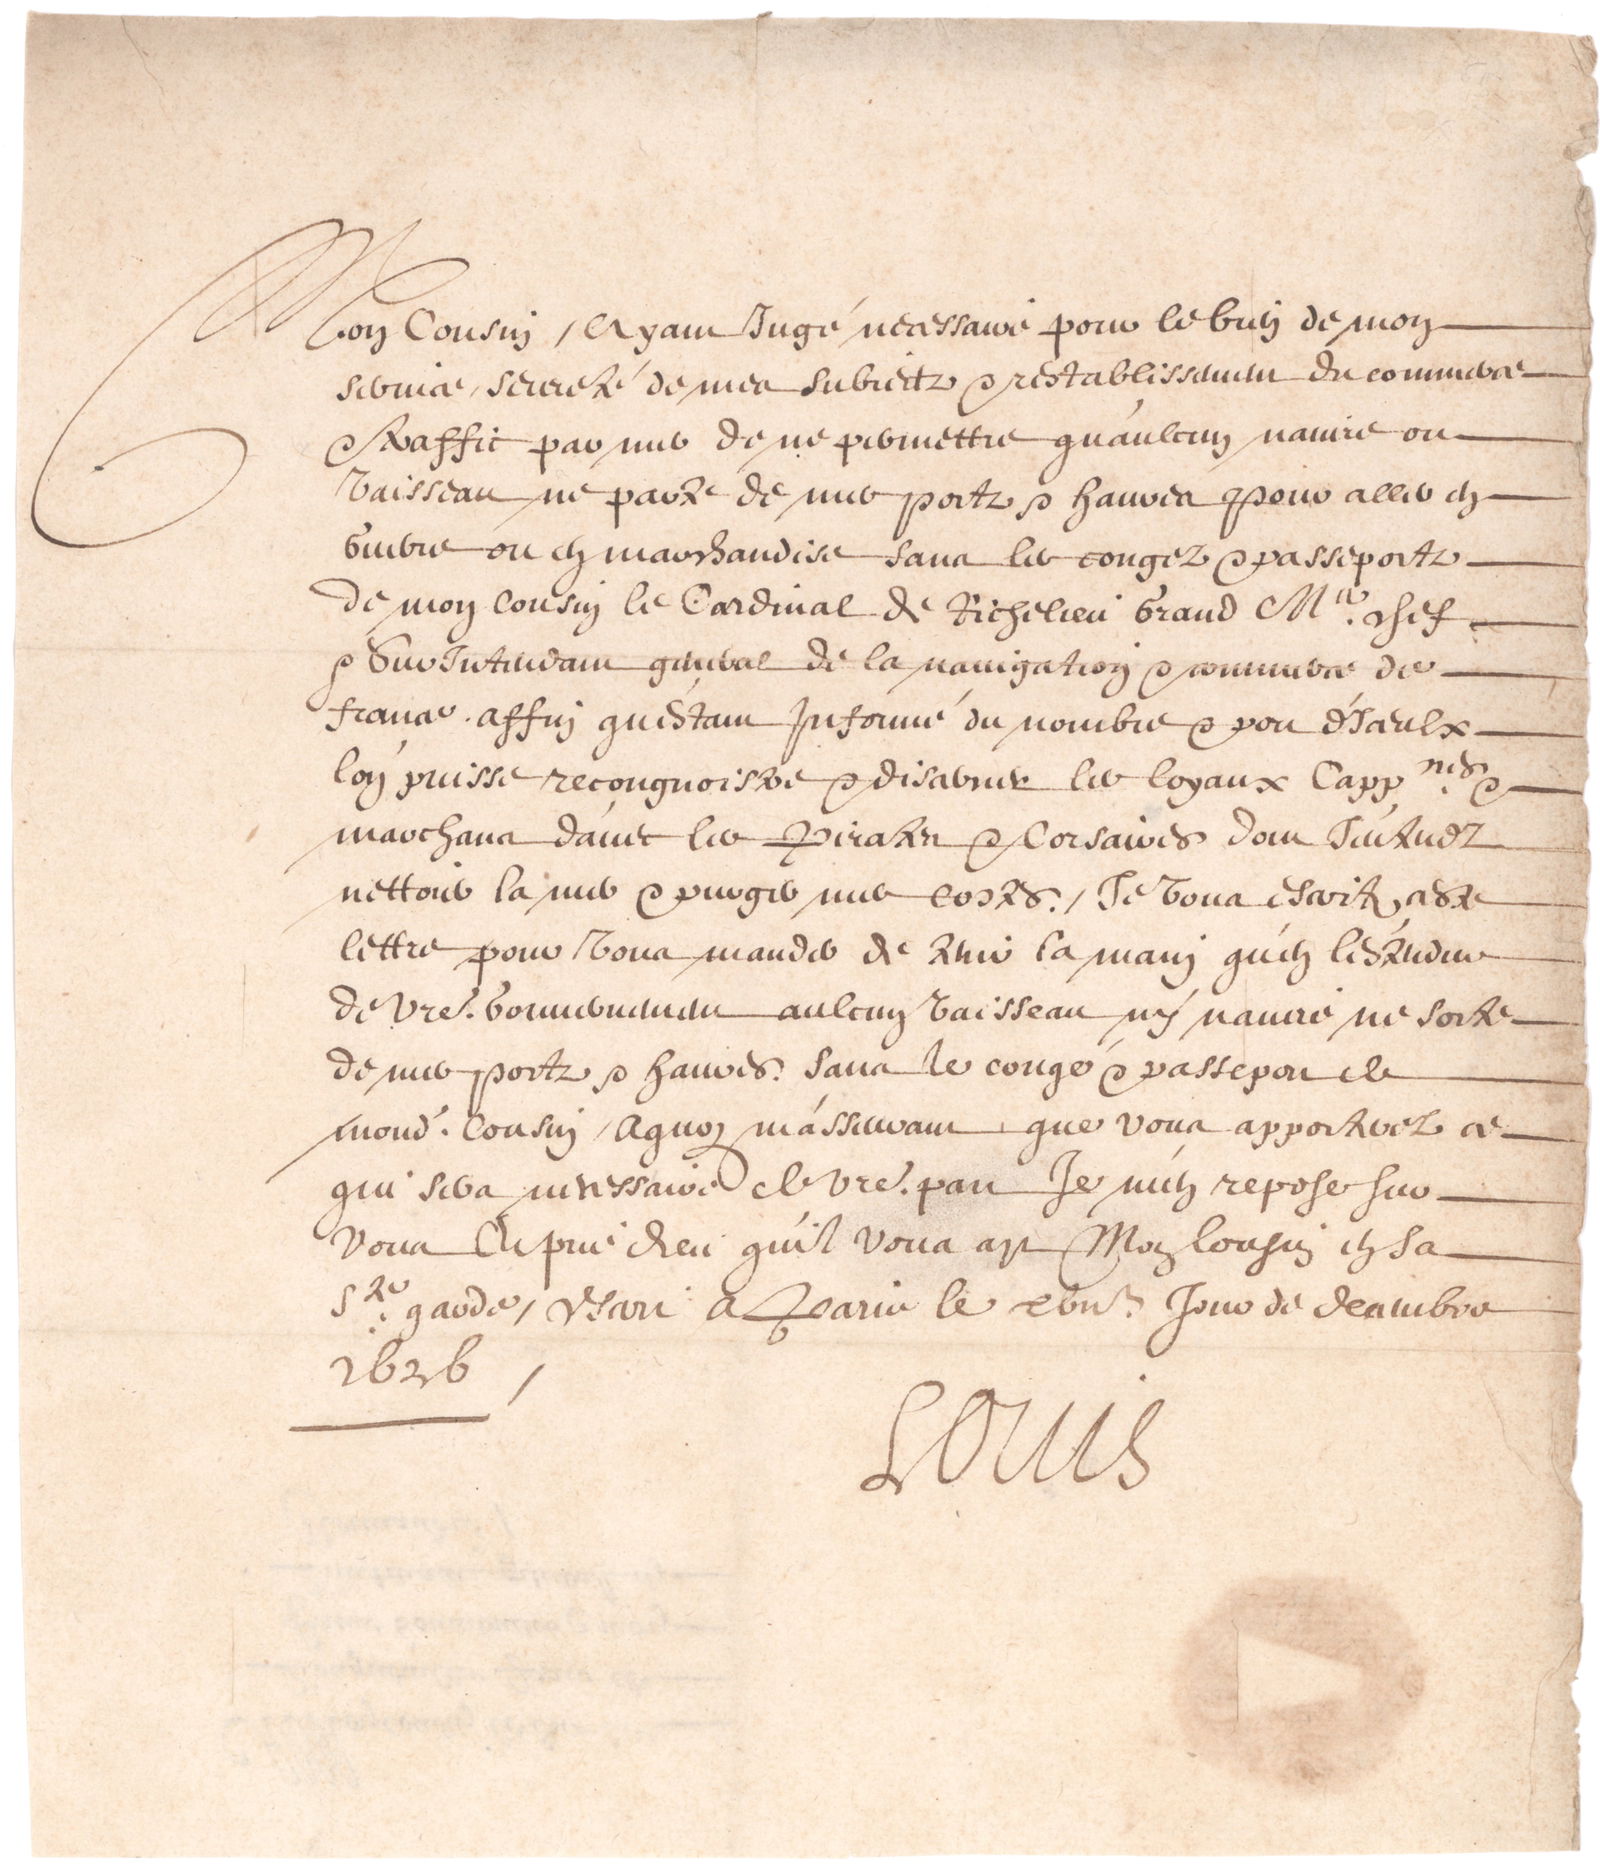 Mon Cousin, Ayant Jugé necessaire pour le bien de mon
service, seureté de mes subiectz & restablissement du commerce
& traffic par mer de ne permettre qu'aulcun navire ou
Vaisseau ne parte de mes portz & havres pour aller en
guerre ou en marchandise sans les congez & passeportz
de mon Cousin le Cardinal de Richelieu Grand Mre. chef
& Sur Intendant general de la navigation & commerce de
france. affin qu'estant Informé du nombre & port d'Iceulx
l'on puisse recongnoistre & discerner les loyaux Cappnes. &
marchans d'avec les Pirates & Corsaires dont J'entendz
nettoier la mer & purger mes costes. / Je Vous escritz ceste
lettre pour Vous mander de tenir la main qu'en l'estendue
de vre. Gouvernement aulcun Vaisseau ny navire ne sorte
de mes portz & havres. sans le congé & passeport de
mond. Cousin, A quoy m'asseurant que vous apporterez ce
qui sera necessaire de vre. part Je m'en repose sur
vous Et prie dieu qu'il vous ayt Mon Cousin en sa
Ste. garde, Escrit a Paris le xvme. Jour de decembre
1626 /
Louis